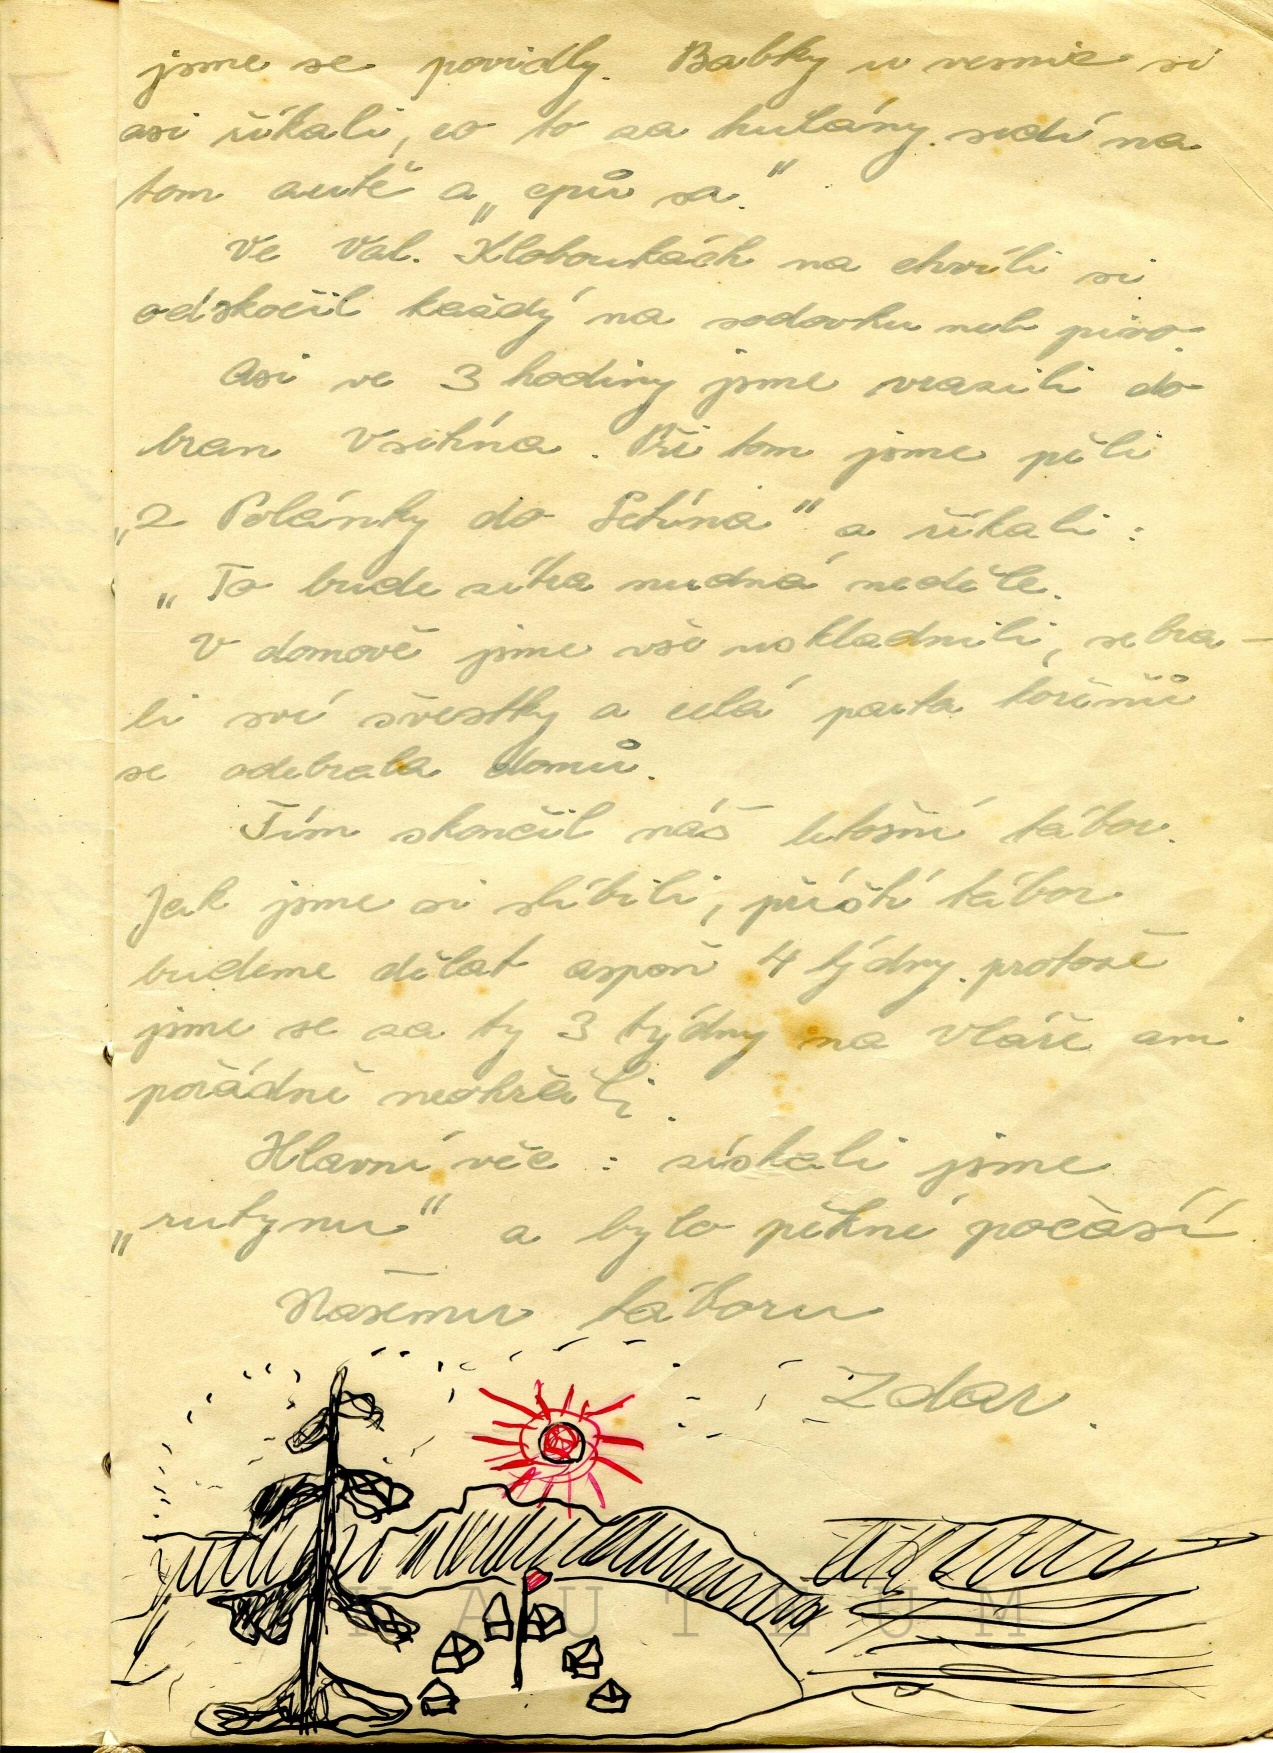 jsme se povidly. Babky u vesnic si
asi říkali, co to za hulány sedí na
tom autě a „epů sa."
Ve Val. Kloboukách na chvíli si
odskočil každý na sodovku neb pivo.
Asi ve 3 hodiny jsme vrazili do
bran Vsetína. Při tom jsme pěli
„Z Polánky do Setína" a říkali:
„To bude zítra nudná neděle.
V domově jsme vše uskladnili, sebra-
li své švestky a celá parta
se odebrala domů.
Tím skončil náš letošní tábor.
Jak jsme si slíbili, příští tábor
budeme dělat aspoň 4 týdny. protože
jsme se za ty 3 týdny na Vláře ani
pořádně neohřáli.
Hlavní věc: získali jsme
„rutynu" a bylo pěkné počasí
Našemu táboru
Zdar.
KAUTEUM